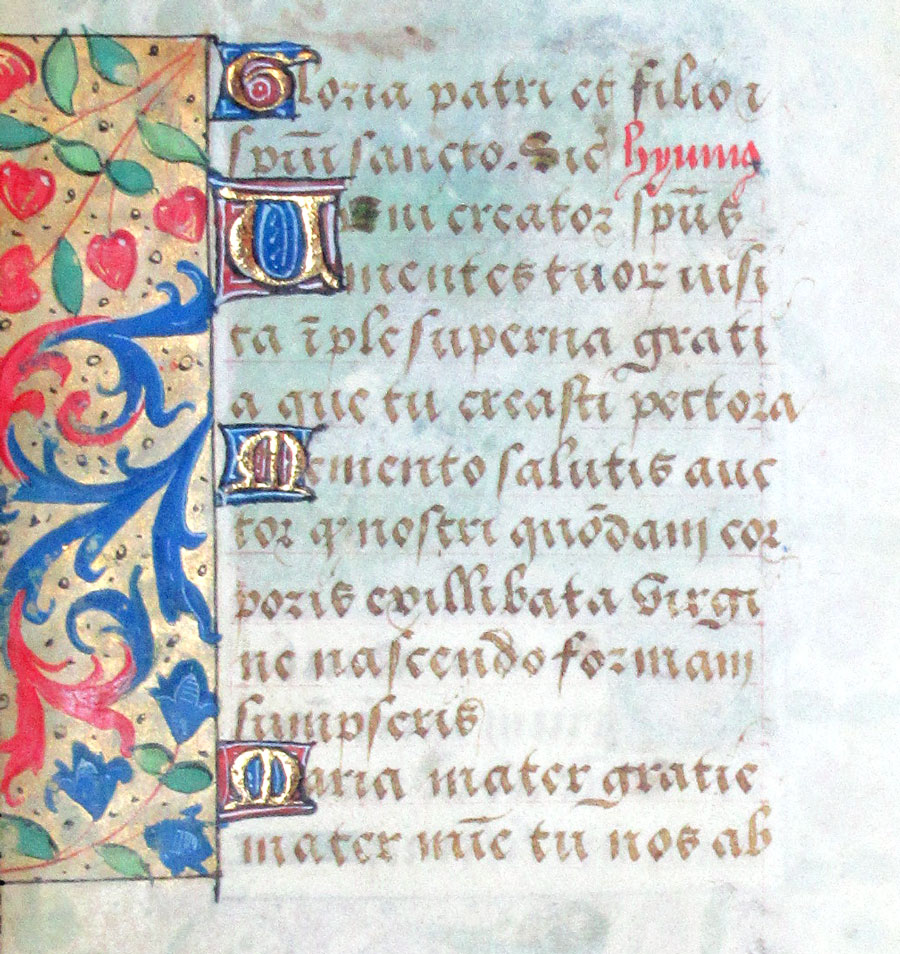 Gloria patri et filio ⁊
spūi sancto. Sic̄ hymnꝰ
Ueni creator sp̄us
mentes tuoꝝ uisi
ta īple superna grati
a que tu creasti pectora
Memento salutis auc
tor ꝙ nostri quōdam cor
poris exillibata virgi
ne nascendo formam
sump̄seris
Maria mater gratie
mater mīe tu nos ab